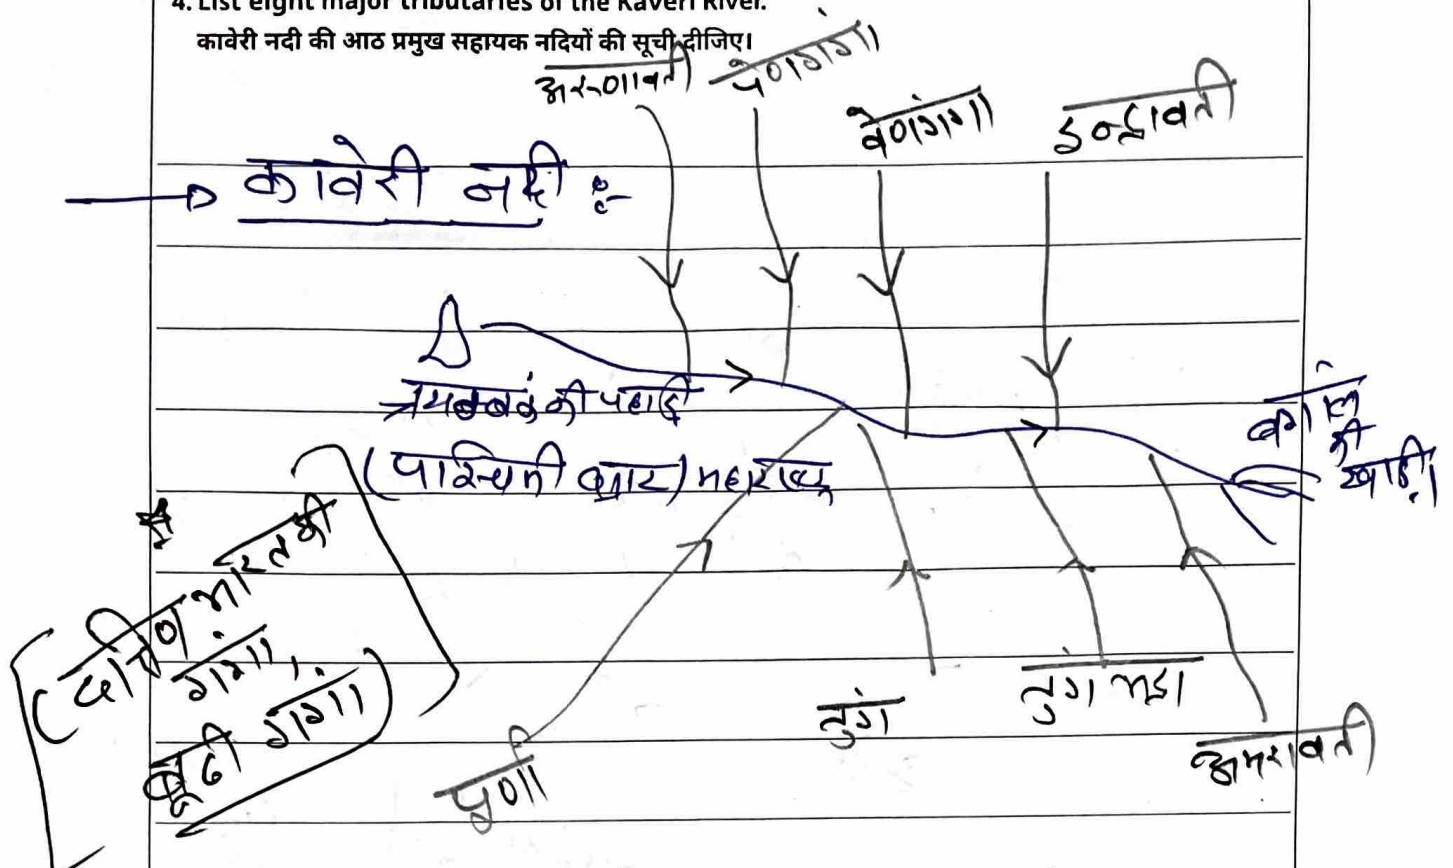 4. List eight major tributaries of the Kaveri River.
कावेरी नदी की आठ प्रमुख सहायक नदियों की सूची दीजिए।
अरुणावती
पेणगंगा
वेणगंगा
इन्द्रावती
कावेरी नदी :-
त्रयम्बकं की पहाड़ी
(पास्चिमी घाट) महाराष्ट्र
बंगाल
की
खाड़ी।
(दक्षिण भारत की
गंगा,
बूढी गंगा)
पूर्णा
तुंग
तुंगभद्रा
अमरावती